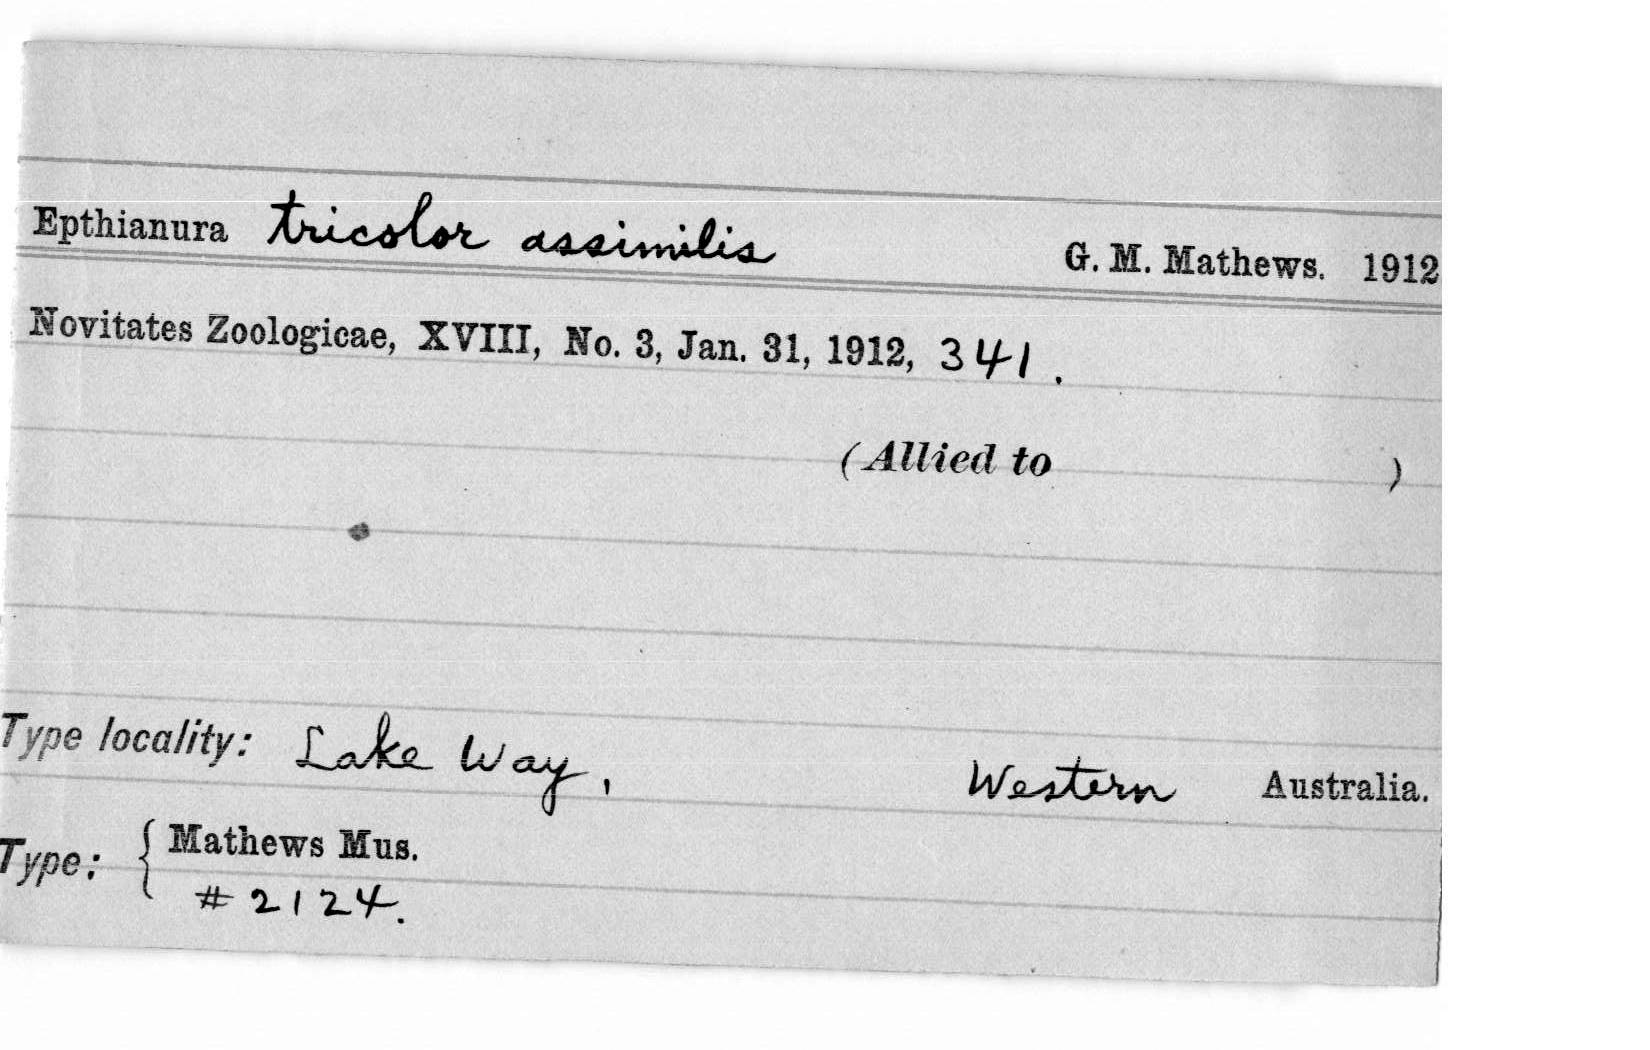 Epthianura tricolor assimilis G. M. Mathews. 1912
Novitates Zoologicae, XVIII, No. 3, Jan. 31, 1912, 341.
(Allied to )
Type locality: Lake Way, Western Australia.
Type: { Mathews Mus.
# 2124.